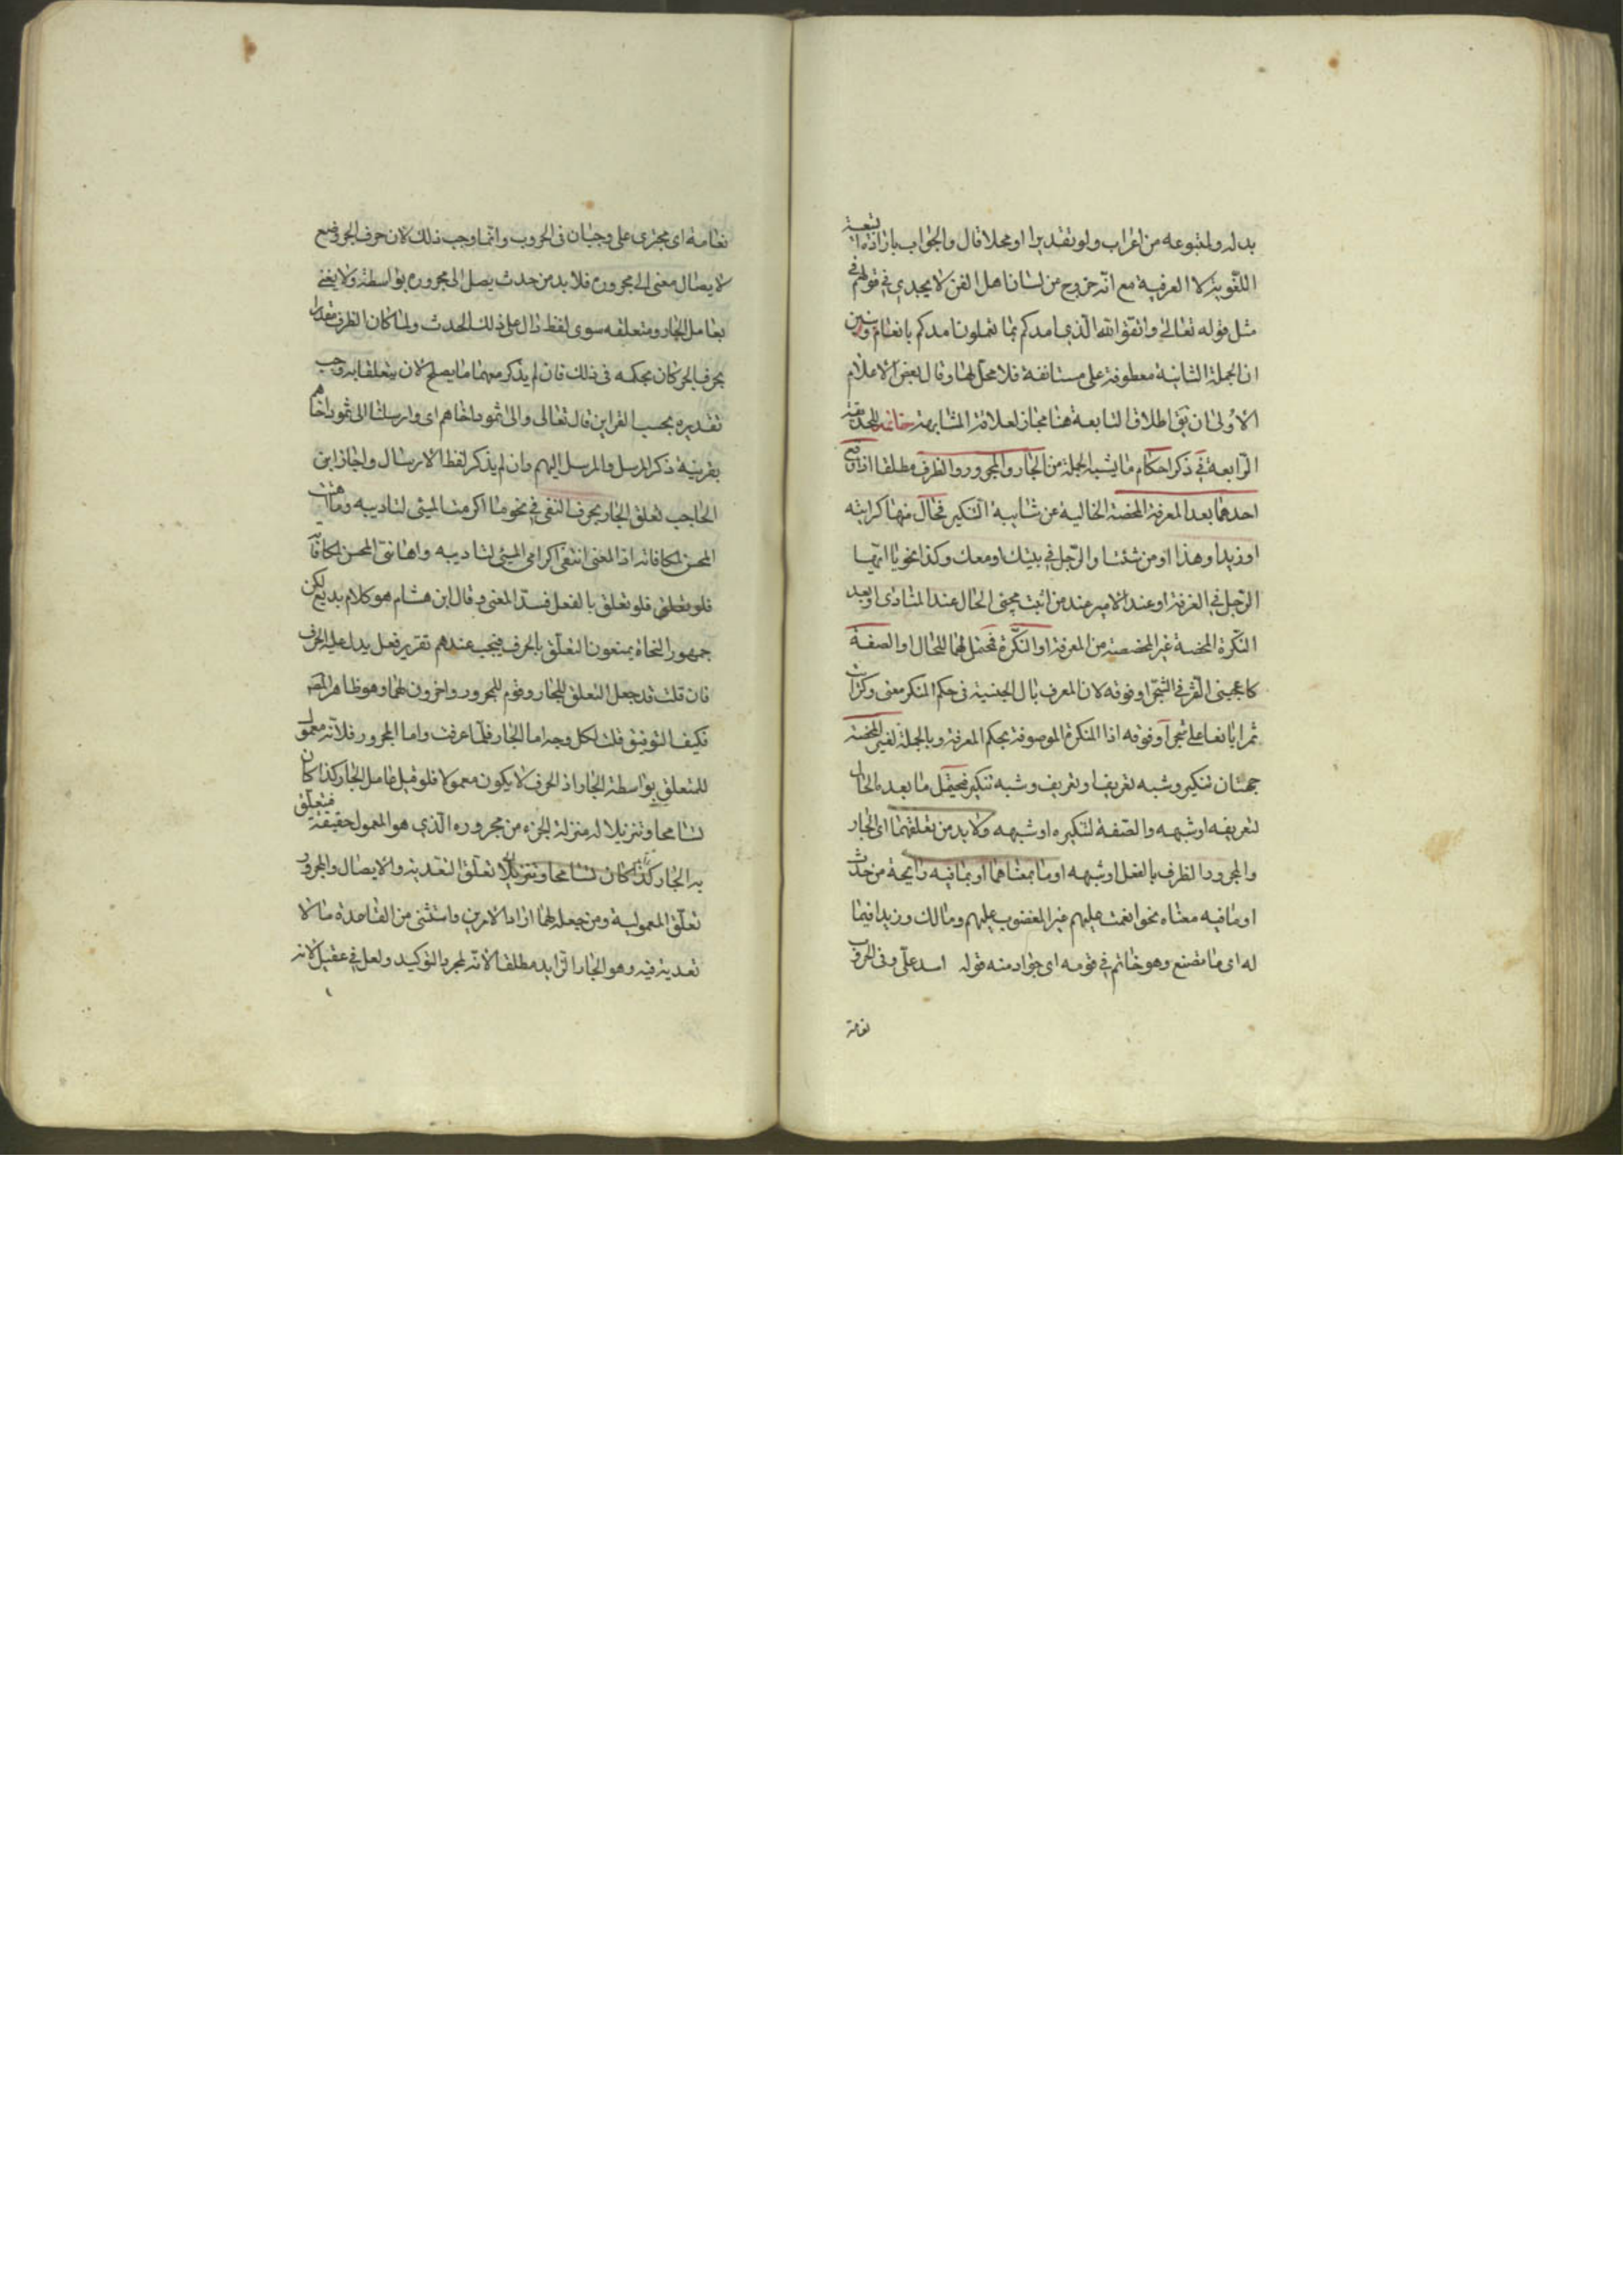 بدله ولمتبوعه من اعراب ولو تقديرا او محلا قال والجواب بارادة التبعية
اللغوية لا العرفية مع انه خروج من لسان اهل الفن لا يجدي في قولهم في
مثل قوله تعالى واتقوا الله الذي امدكم بما تعملون امدكم بانعام وبنين
ان الجملة الثانية معطوفة على مستانفة فلا محل لها وقال بعض الاعلام
الاولى ان يق اطلاق التابعة هنا مجاز لعلاقة المشابهة خاتمة للحديقة
الرابعة في ذكر احكام ما يشبه الجملة من الجار والمجرور والظرف مطلقا اذا وقع
احدهما بعد المعرفة المحضة الخالية من شايبة التنكير فحال منها كرايته
او زيدا وهذا او من شئت والرجل في بيتك او معك وكذا نحو يا ايها
الرجل في الغرفة او عند الامير عند من اثبت مجئ الحال عند المنادى او بعد
النكرة المحضة غير المخصصة من المعرفة او النكرة فمحتمل لهما للحال والصفة
كاعجبنى الثمر في الشجر او فوقه لان المعرف بال الجنسية فى حكم المنكر معنى وكرايت
ثمرا يانعا على شجر او فوقه اذ المنكرة الموصوفة بحكم المعرفة وبالجملة لغير المحضة
جهتان تنكير وشبه تعريف او تعريف وشبه تنكير فيحتمل ما بعده الحال
لتعريفه او شبهه والصفة لتنكيره او شبهه ولا بد من تعلقهما اى الجار
والمجرور والظرف بالفعل او شبهه او ما بمعناهما او بما فيه رايحة من حدث
او ما فيه معناه نحو انعمت عليهم غير المغضوب عليهم وما لك وزيد افيما
له اى ما تصنع وهو حاتم في قومه اى جواد منه قوله اسد على وفى الحروب
نعامة
نعامة اى مجترى على وجبان فى الحروب وانما وجب ذلك لان حرف الجر وضع
لايصال معنى الى مجروره فلا بد من حدث يصل الى مجروره بواسطته ولا يعنى
بعامل الجار ومتعلقه سوى لفظ دال على ذلك الحدث ولما كان الظرف مقدرا
بحرف الجر كان بحكمه فى ذلك فان لم يذكر معهما ما يصلح لان يتعلقا به وجب
تقديره بحسب القراين قال تعالى والى ثمود اخاهم اى وارسلنا الى ثمود اخاهم
بقرينة ذكر المرسل والمرسل اليهم وان لم يذكر لفظ الارسال واجاز ابن
الحاجب تعلق الجار بحرف النفى في نحو ما اكرمت المسئى لتاديبه وما اهنت
المحسن لمكافاته اذ المعنى انتفى اكرامى المسئى لتاديبه واهانتى المحسن لمكافاته
فلو تعلق بالفعل فسد المعنى وقال ابن هشام هو كلام بديع لكن
جمهور النحاة يمنعون التعلق بالحرف فيجب عندهم تقدير فعل يدل عليه الحرف
فان قلت قد جعل التعلق للجار وقوم للمجرور واخرون لهما وهو ظاهر المصـ
فكيف التوفيق قلت لكل وجه اما الجار فلما عرفت واما المجرور فلانه معمول
للمتعلق بواسطة الجار اذ الحرف لا يكون معمولا فلو قيل عامل الجار كذا كان
تسامحا وتنزيلا له منزلة الجزء من مجروره الذي هو المعمول حقيقة فتعلق
به الجار كذا كان تسامحا وتنزيلا تعلق التعدية والايصال والمجرور
تعلق المعمولية ومن جعله لهما اراد الامرين واستثنى من القاعدة ما لا
تعدية فيه وهو الجار الزايد مطلقا لانه لمجرد التوكيد ولعل في عقيل لانه